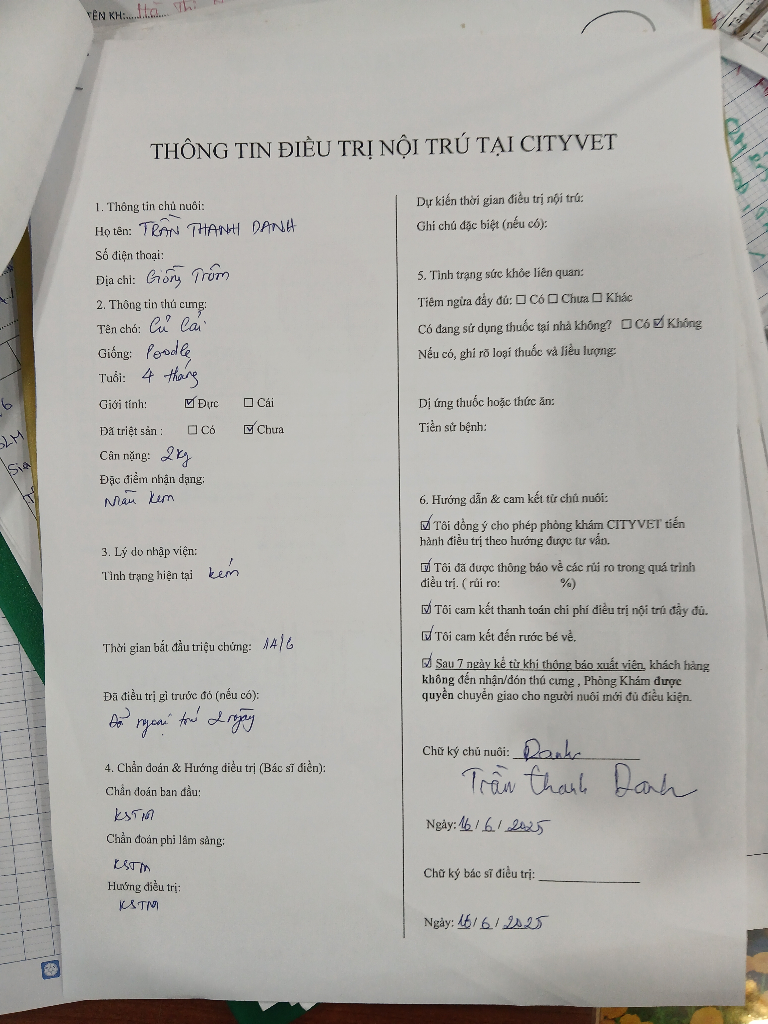 ÊN KH:
THÔNG TIN ĐIỀU TRỊ NỘI TRÚ TẠI CITYVET
1. Thông tin chủ nuôi:
Họ tên: TRẦN THANH DANH
Số điện thoại:
Địa chỉ: Giồng Trôm
2. Thông tin thú cưng:
Tên chó: Củ Cải
Giống: Poodle
Tuổi: 4 tháng
Giới tính: ☑ Đực ☐ Cái
Đã triệt sản : ☐ Có ☑ Chưa
Cân nặng: 2kg
Đặc điểm nhận dạng:
Màu kem
3. Lý do nhập viện:
Tình trạng hiện tại kém
Thời gian bắt đầu triệu chứng: 14/6
Đã điều trị gì trước đó (nếu có):
Đã ngoại trú 2 ngày
4. Chẩn đoán & Hướng điều trị (Bác sĩ điền):
Chẩn đoán ban đầu:
KSTM
Chẩn đoán phi lâm sàng:
KSTM
Hướng điều trị:
KSTM
Dự kiến thời gian điều trị nội trú:
Ghi chú đặc biệt (nếu có):
5. Tình trạng sức khỏe liên quan:
Tiêm ngừa đầy đủ: ☐ Có ☐ Chưa ☐ Khác
Có đang sử dụng thuốc tại nhà không? ☐ Có ☑ Không
Nếu có, ghi rõ loại thuốc và liều lượng:
Dị ứng thuốc hoặc thức ăn:
Tiền sử bệnh:
6. Hướng dẫn & cam kết từ chủ nuôi:
☑ Tôi đồng ý cho phép phòng khám CITYVET tiến
hành điều trị theo hướng được tư vấn.
☑ Tôi đã được thông báo về các rủi ro trong quá trình
điều trị. ( rủi ro: %)
☑ Tôi cam kết thanh toán chi phí điều trị nội trú đầy đủ.
☑ Tôi cam kết đến rước bé về.
☑ Sau 7 ngày kể từ khi thông báo xuất viện, khách hàng
không đến nhận/đón thú cưng , Phòng Khám được
quyền chuyển giao cho người nuôi mới đủ điều kiện.
Chữ ký chủ nuôi: Danh
Trần Thanh Danh
Ngày: 16 / 6 / 2025
Chữ ký bác sĩ điều trị:
Ngày: 16 / 6 / 2025